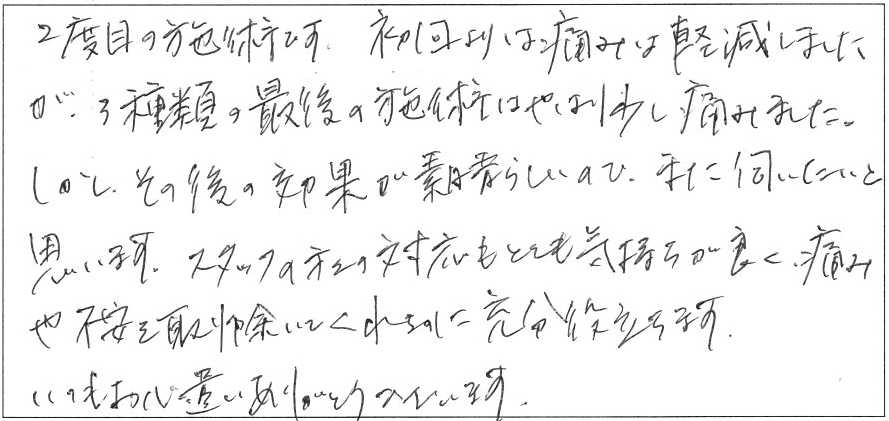 2度目の施術です。初回よりは痛みは軽減しました
が、3種類の最後の施術はやはり少し痛みました。
しかし、その後の効果が素晴らしいので、また伺いたいと
思います。スタッフの方々の対応もとても気持ちが良く、痛み
や不安を取り除いてくれるのに充分役立ちます。
いつもお心遣いありがとうございます。